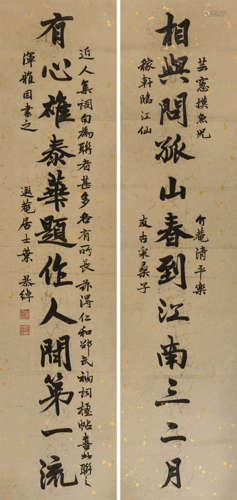 相與問孤山春到江南三二月
芸窓摸魚兒
稼軒臨江仙
竹菴清平樂
友古采桑子
有心雄泰華題作人間第一流
近人集詞句為聯者甚多各有所長亦得仁和邵氏
渾雅因書之
遐菴居士葉恭綽